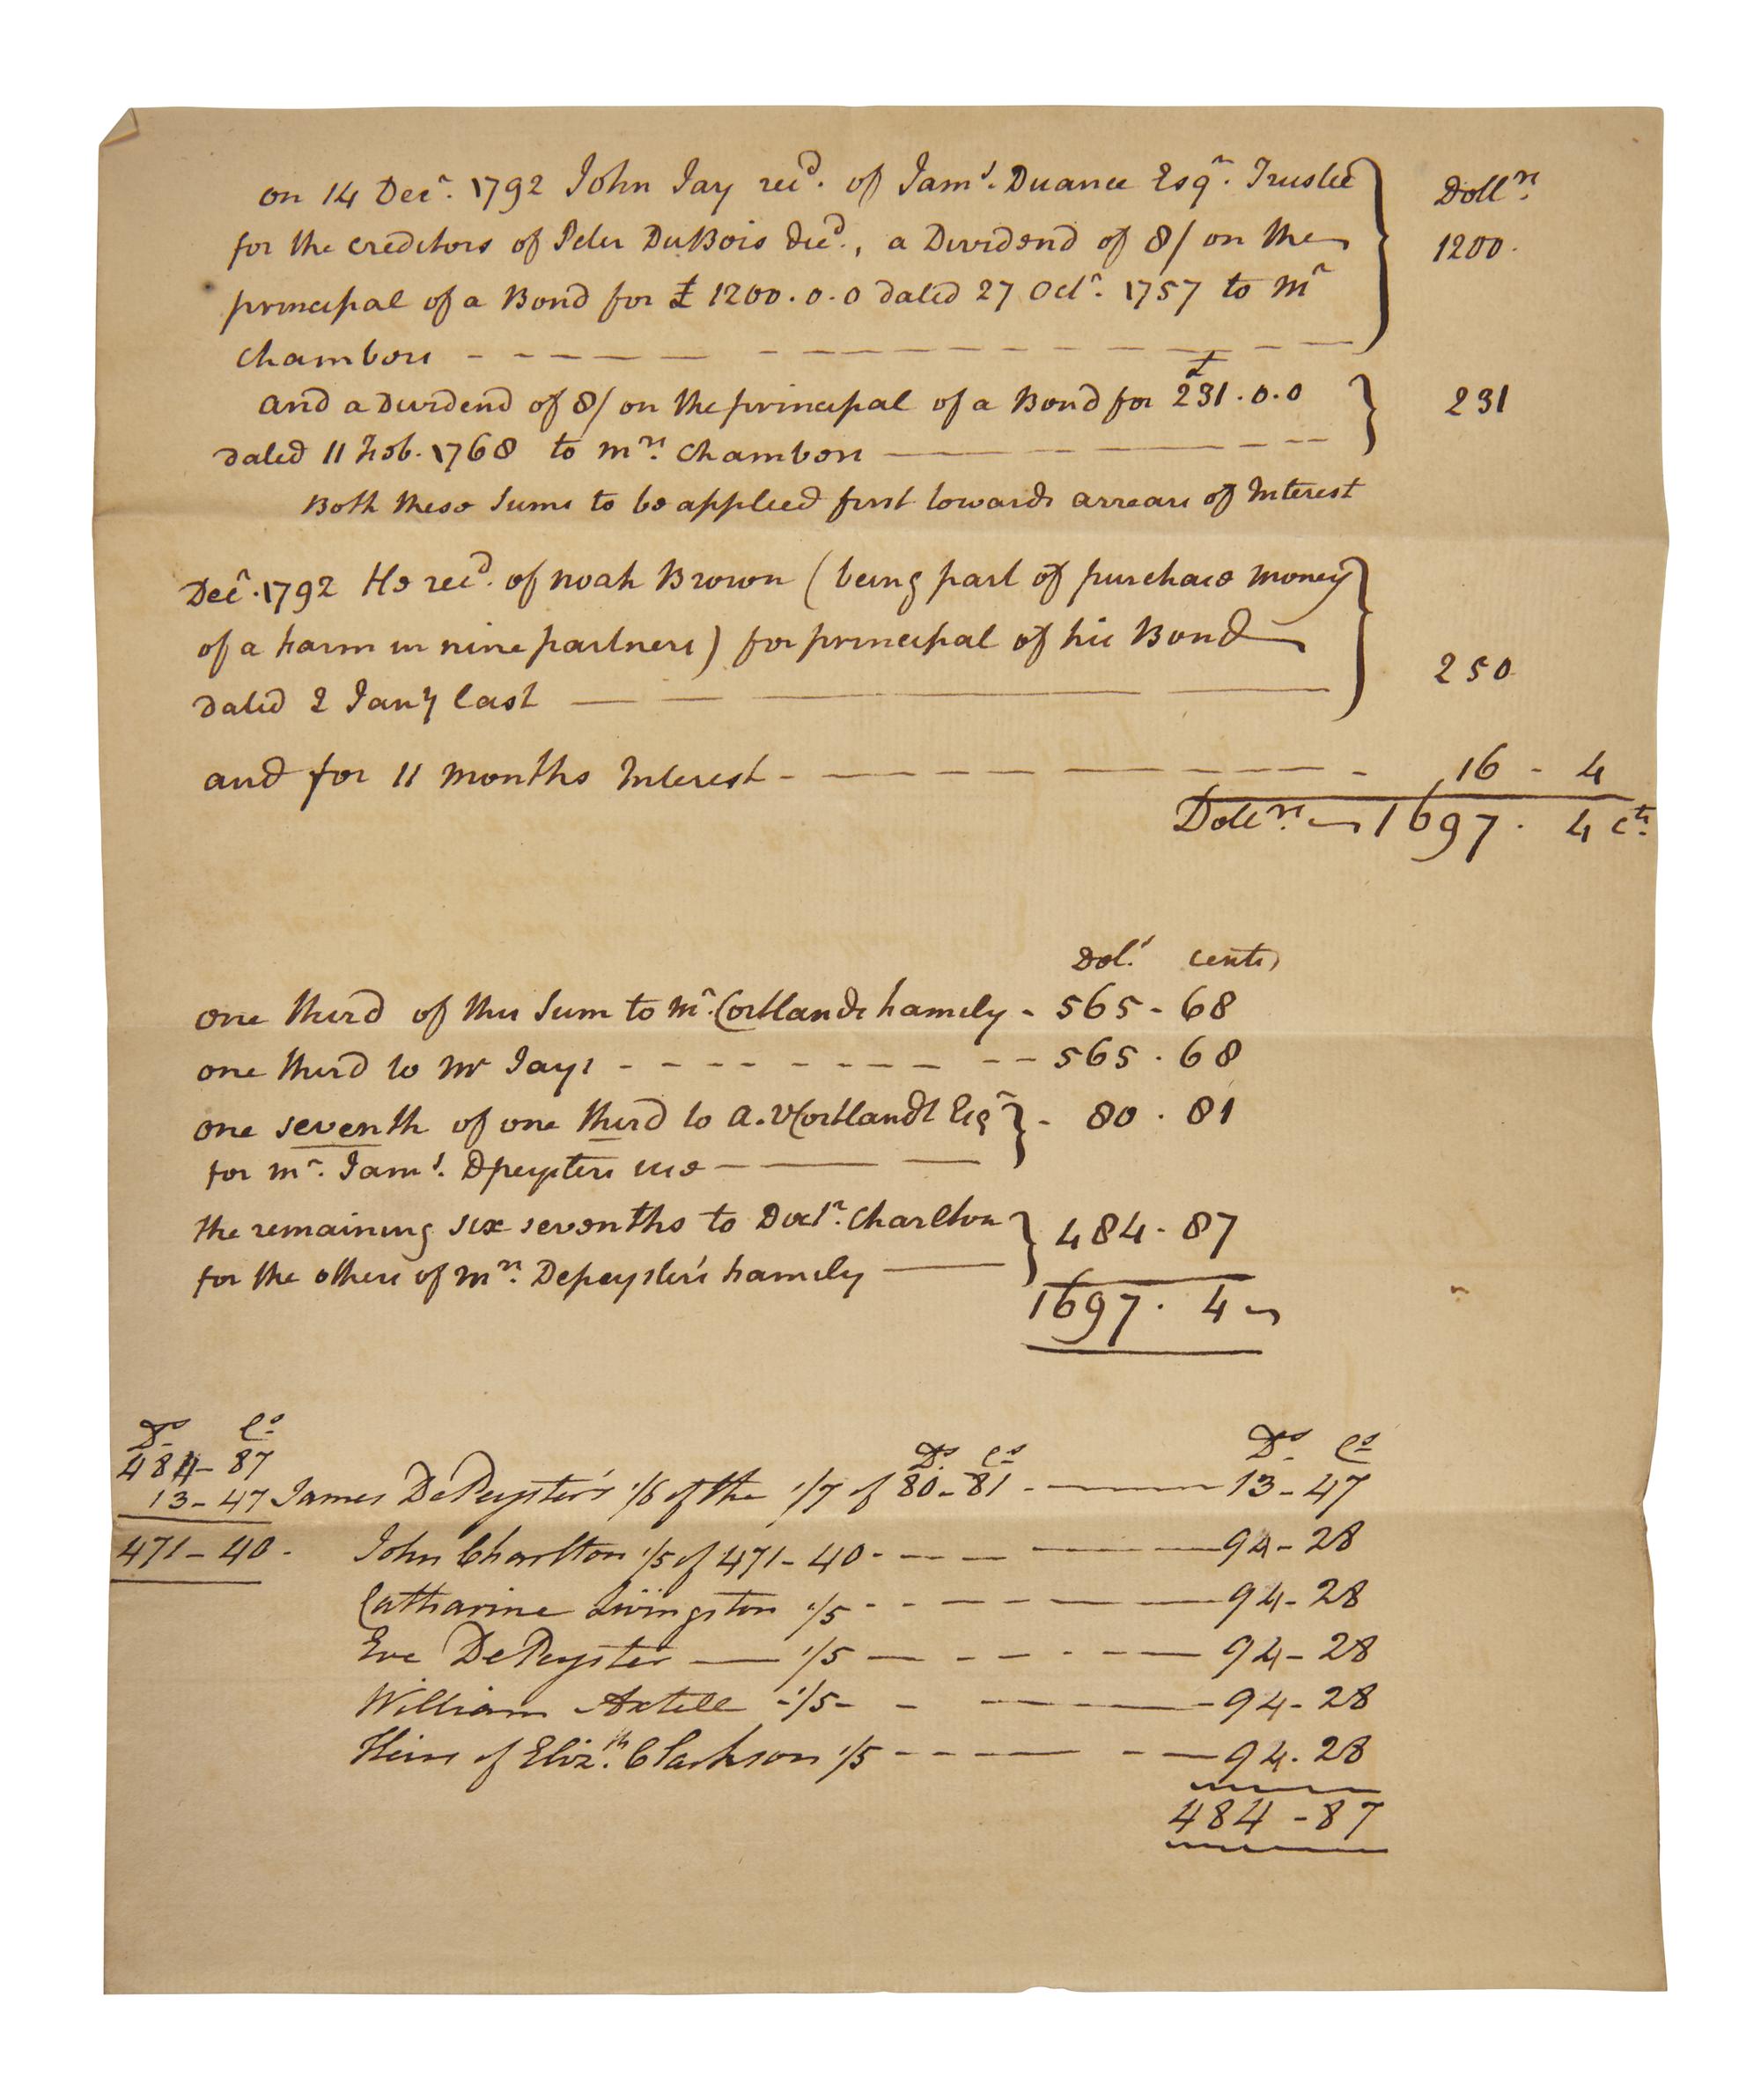 on 14 Decr. 1792 John Jay recd. of Jams. Duane Esqr. Trustee
Dollrs.
for the creditors of Peter DuBois decd., a Dividend of 8/ on the
1200.
principal of a Bond for £ 1200.0.0 dated 27 Octr. 1757 to Mr
Chambers
and a Dividend of 8/ on the principal of a Bond for £ 231.0.0
231
dated 11 Feb. 1768 to Mrs. Chambers
Both these Sums to be applied first towards arrears of Interest
Decr. 1792 He recd. of Noah Brown (being part of purchase money
of a Farm in nine partners) for principal of his Bond
250
dated 2 Jany last
and for 11 Months Interest - 16 - 4
Dollrs. 1697. 4 cts.
Dols. cents
one third of this Sum to Mr. Cortlandts Family - 565 - 68
one third to Mr Jays - 565 . 68
one seventh of one third to A. VCortlandt Esqr - 80 . 81
for Mr. Jams. Dpeysters use
the remaining six sevenths to Doctr. Charlton
484 - 87
for the others of Mrs. Depeyster's Family
1697. 4
Ds. Cs.
484 - 87
Ds. Cs. Ds. Cs.
13 - 47 James DePeyster's 1/6 of the 1/7 of 80 - 81 - 13 - 47
471 - 40 - John Charlton 1/5 of 471 - 40 - 94 - 28
Catharine Livingston 1/5 - 94 - 28
Eve DePeyster 1/5 - 94 - 28
William Axtell 1/5 - 94 - 28
Heirs of Elizth. Clarkson 1/5 - 94 . 28
484 - 87